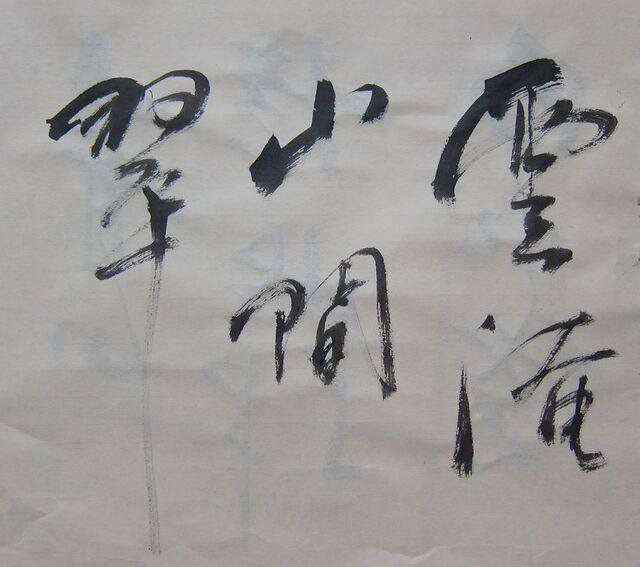 雲淹
山間
翠